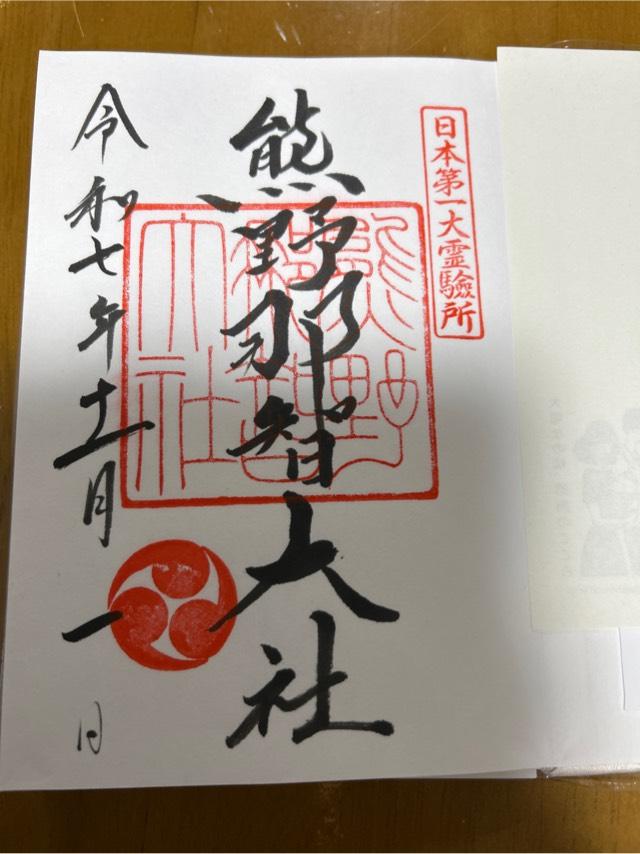 日本第一大霊験所
熊野那智大社
令和七年十一月一日